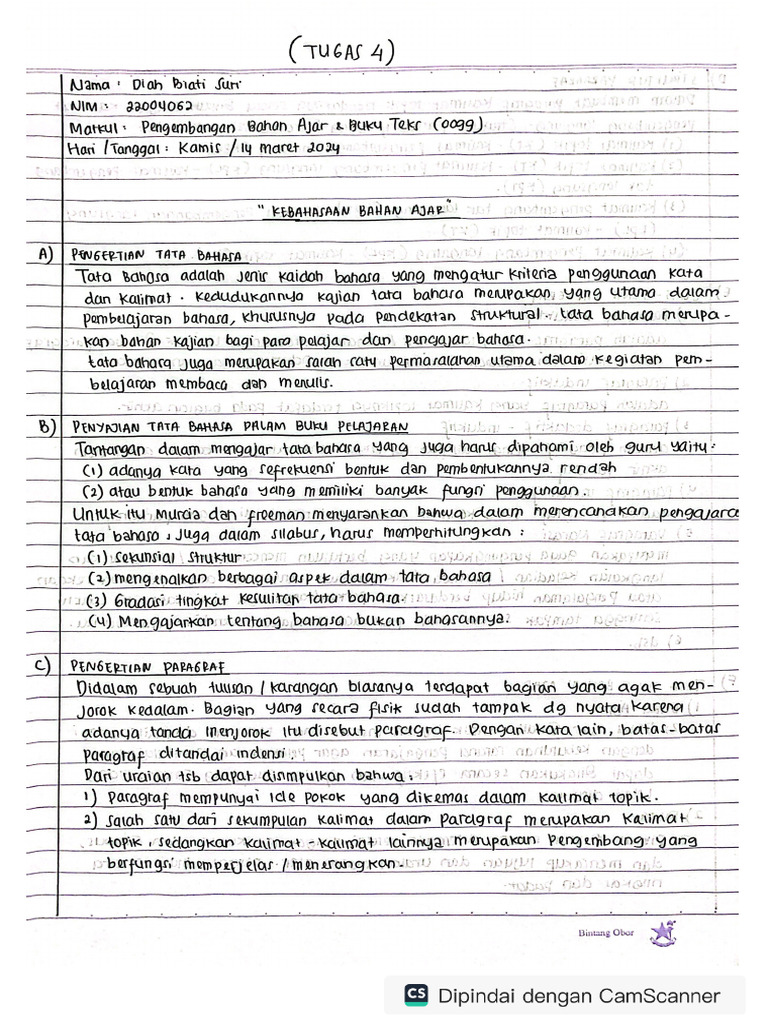 (TUGAS 4)
Nama : Diah Biati Suri
NIM : 22004062
Matkul : Pengembangan Bahan Ajar & Buku Teks (0099)
Hari /Tanggal : Kamis / 14 Maret 2024
"KEBAHASAAN BAHAN AJAR"
A) PENGERTIAN TATA BAHASA
Tata Bahasa adalah jenis kaidah bahasa yang mengatur kriteria penggunaan kata
dan kalimat. Kedudukannya kajian tata bahasa merupakan yang utama dalam
pembelajaran bahasa, khususnya pada pendekatan struktural. tata bahasa merupa-
kan bahan kajian bagi para pelajar dan pengajar bahasa.
tata bahasa juga merupakan salah satu permasalahan utama dalam kegiatan pem-
belajaran membaca dan menulis.
B) PENYAJIAN TATA BAHASA DALAM BUKU PELAJARAN
Tantangan dalam mengajar tata bahasa yang juga harus dipahami oleh guru yaitu :
(1) adanya kata yang sefrekuensi bentuk dan pembentukannya rendah
(2) atau bentuk bahasa yang memiliki banyak fungsi penggunaan.
Untuk itu Murcia dan freeman menyarankan bahwa dalam merencanakan pengajara
tata bahasa, juga dalam silabus, harus memperhitungkan :
(1) sekunsial struktur
(2) mengenalkan berbagai aspek dalam tata bahasa
(3) Gradasi tingkat kesulitan tata bahasa
(4) Mengajarkan tentang bahasa bukan bahasannya.
C) PENGERTIAN PARAGRAF
Didalam sebuah tulisan / karangan biasanya terdapat bagian yang agak men-
jorok kedalam. Bagian yang secara fisik sudah tampak dg nyata karena
adanya tanda menjorok itu disebut paragraf. Dengan kata lain, batas-batas
Paragraf ditandai indensi.
Dari uraian tsb dapat disimpulkan bahwa :
1) Paragraf mempunyai ide pokok yang dikemas dalam kalimat topik.
2) Salah satu dari sekumpulan kalimat dalam paragraf merupakan kalimat
topik, sedangkan kalimat-kalimat lainnya merupakan pengembang yang
berfungsi memperjelas / menerangkan.
Bintang Obor
CS Dipindai dengan CamScanner